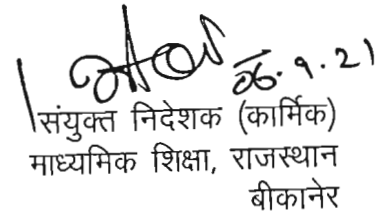 06.9.21
संयुक्त निदेशक (कार्मिक)
माध्यमिक शिक्षा, राजस्थान
बीकानेर